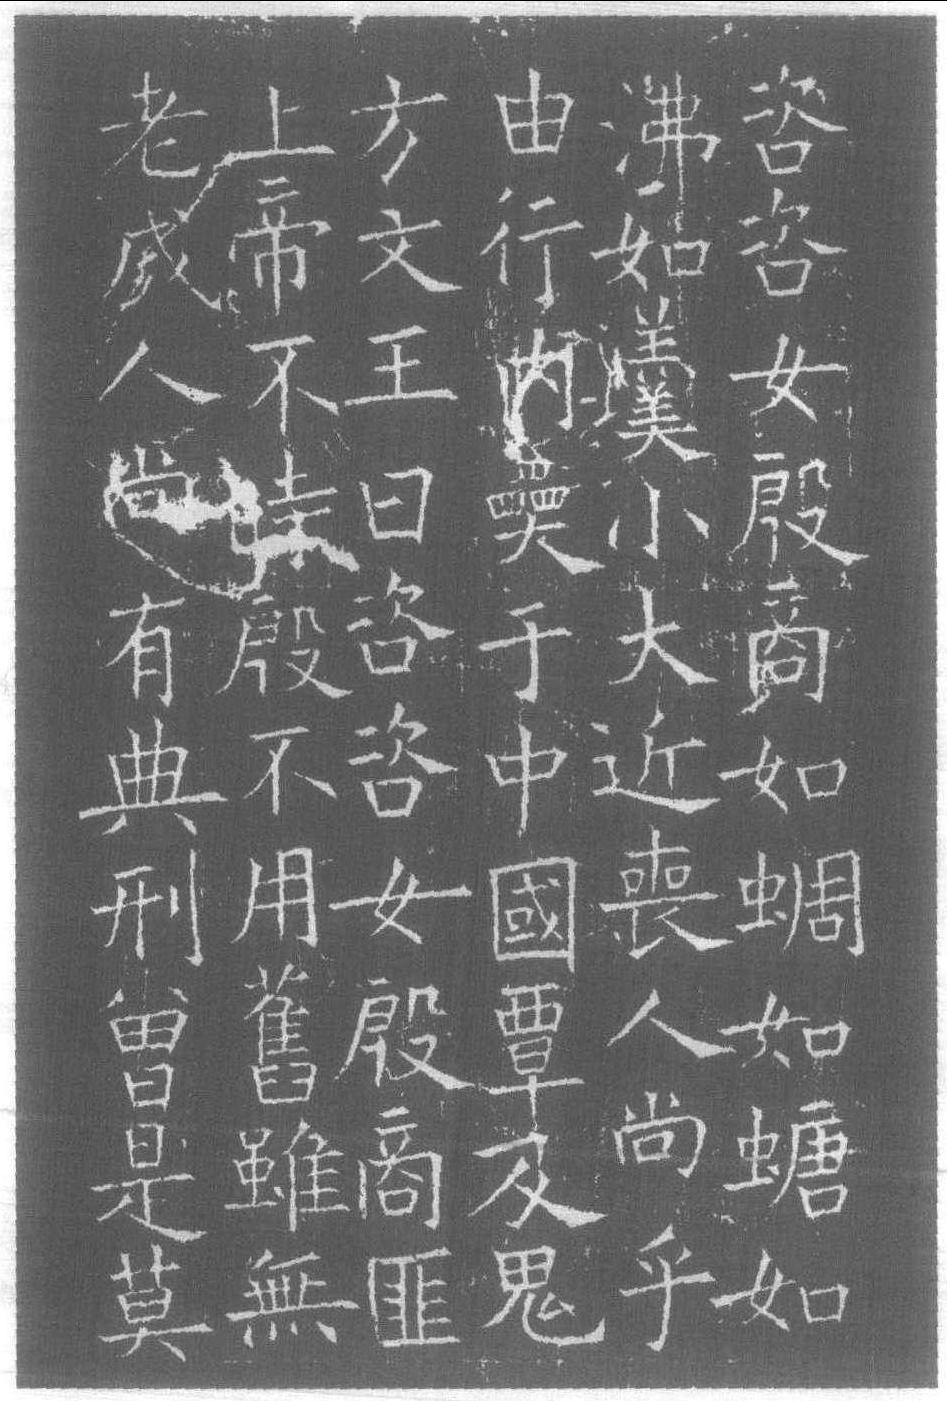 咨咨女殷商如蜩如螗如
沸如羹小大近喪人尚乎
由行内奰于中國覃及鬼
方文王曰咨咨女殷商匪
上帝不時殷不用舊雖無
老成人尚有典刑曾是莫